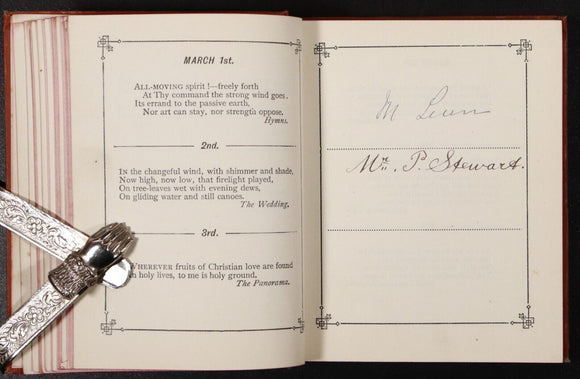 MARCH 1st.
ALL-MOVING spirit!—freely forth
At Thy command the strong wind goes,
Its errand to the passive earth,
Nor art can stay, nor strength oppose.
Hymns.
2nd.
IN the changeful wind, with shimmer and shade,
Now high, now low, that firelight played,
On tree-leaves wet with evening dews,
On gliding water and still canoes.
The Wedding.
3rd.
WHEREVER fruits of Christian love are found
In holy lives, to me is holy ground.
The Panorama.
M
Mr. P. Stewart.